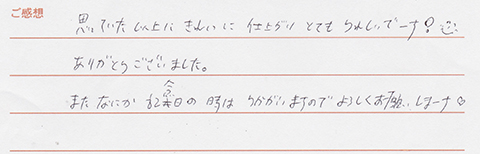 ご感想
思っていた以上に きれいに 仕上がり とても うれしいでーす!
ありがとうございました。
また なにか 記念日の 時は うかがいますので よろしくお願いしまーす♡